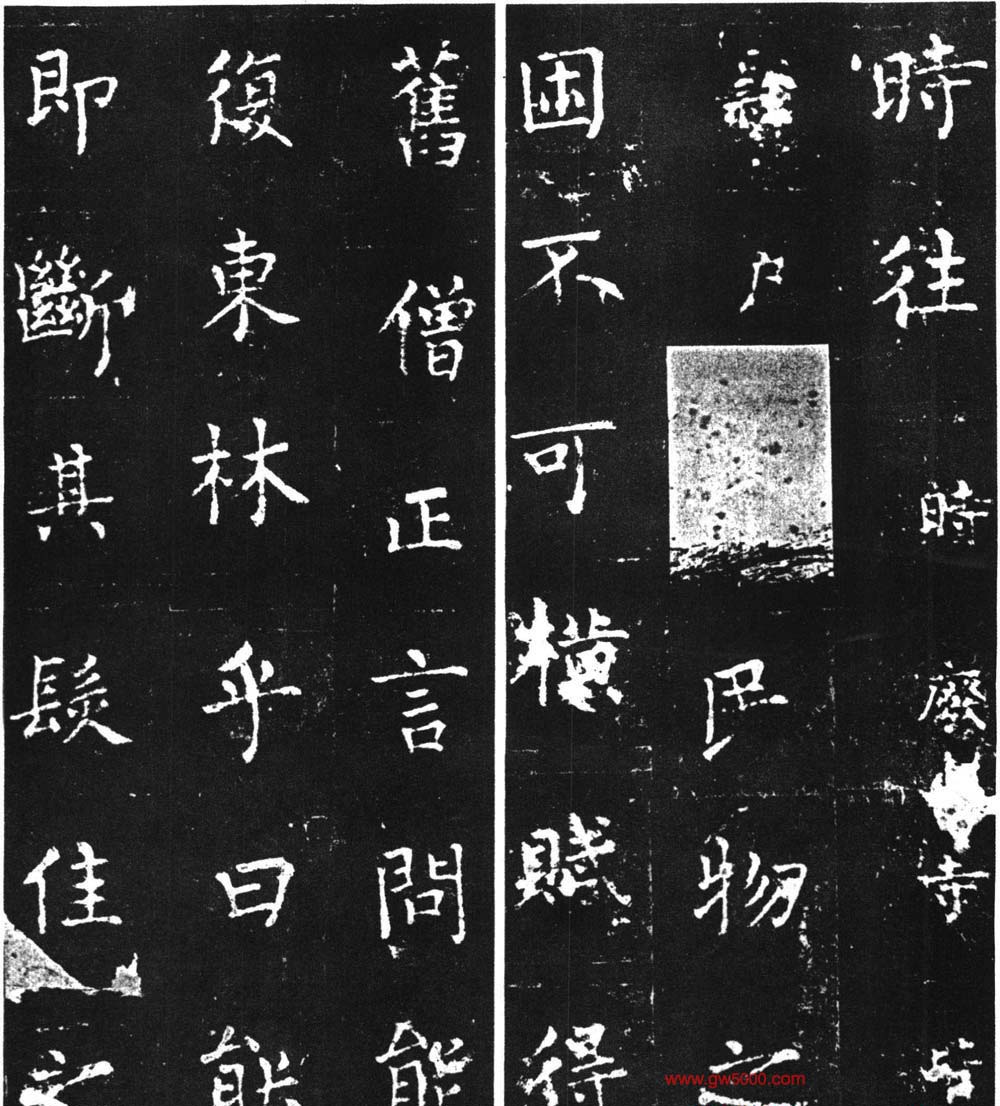 時往時廢寺
戶物
困不可橫賦得
舊僧正言問能
復東林乎曰能
即斷其髮佳之
www.gw5000.com